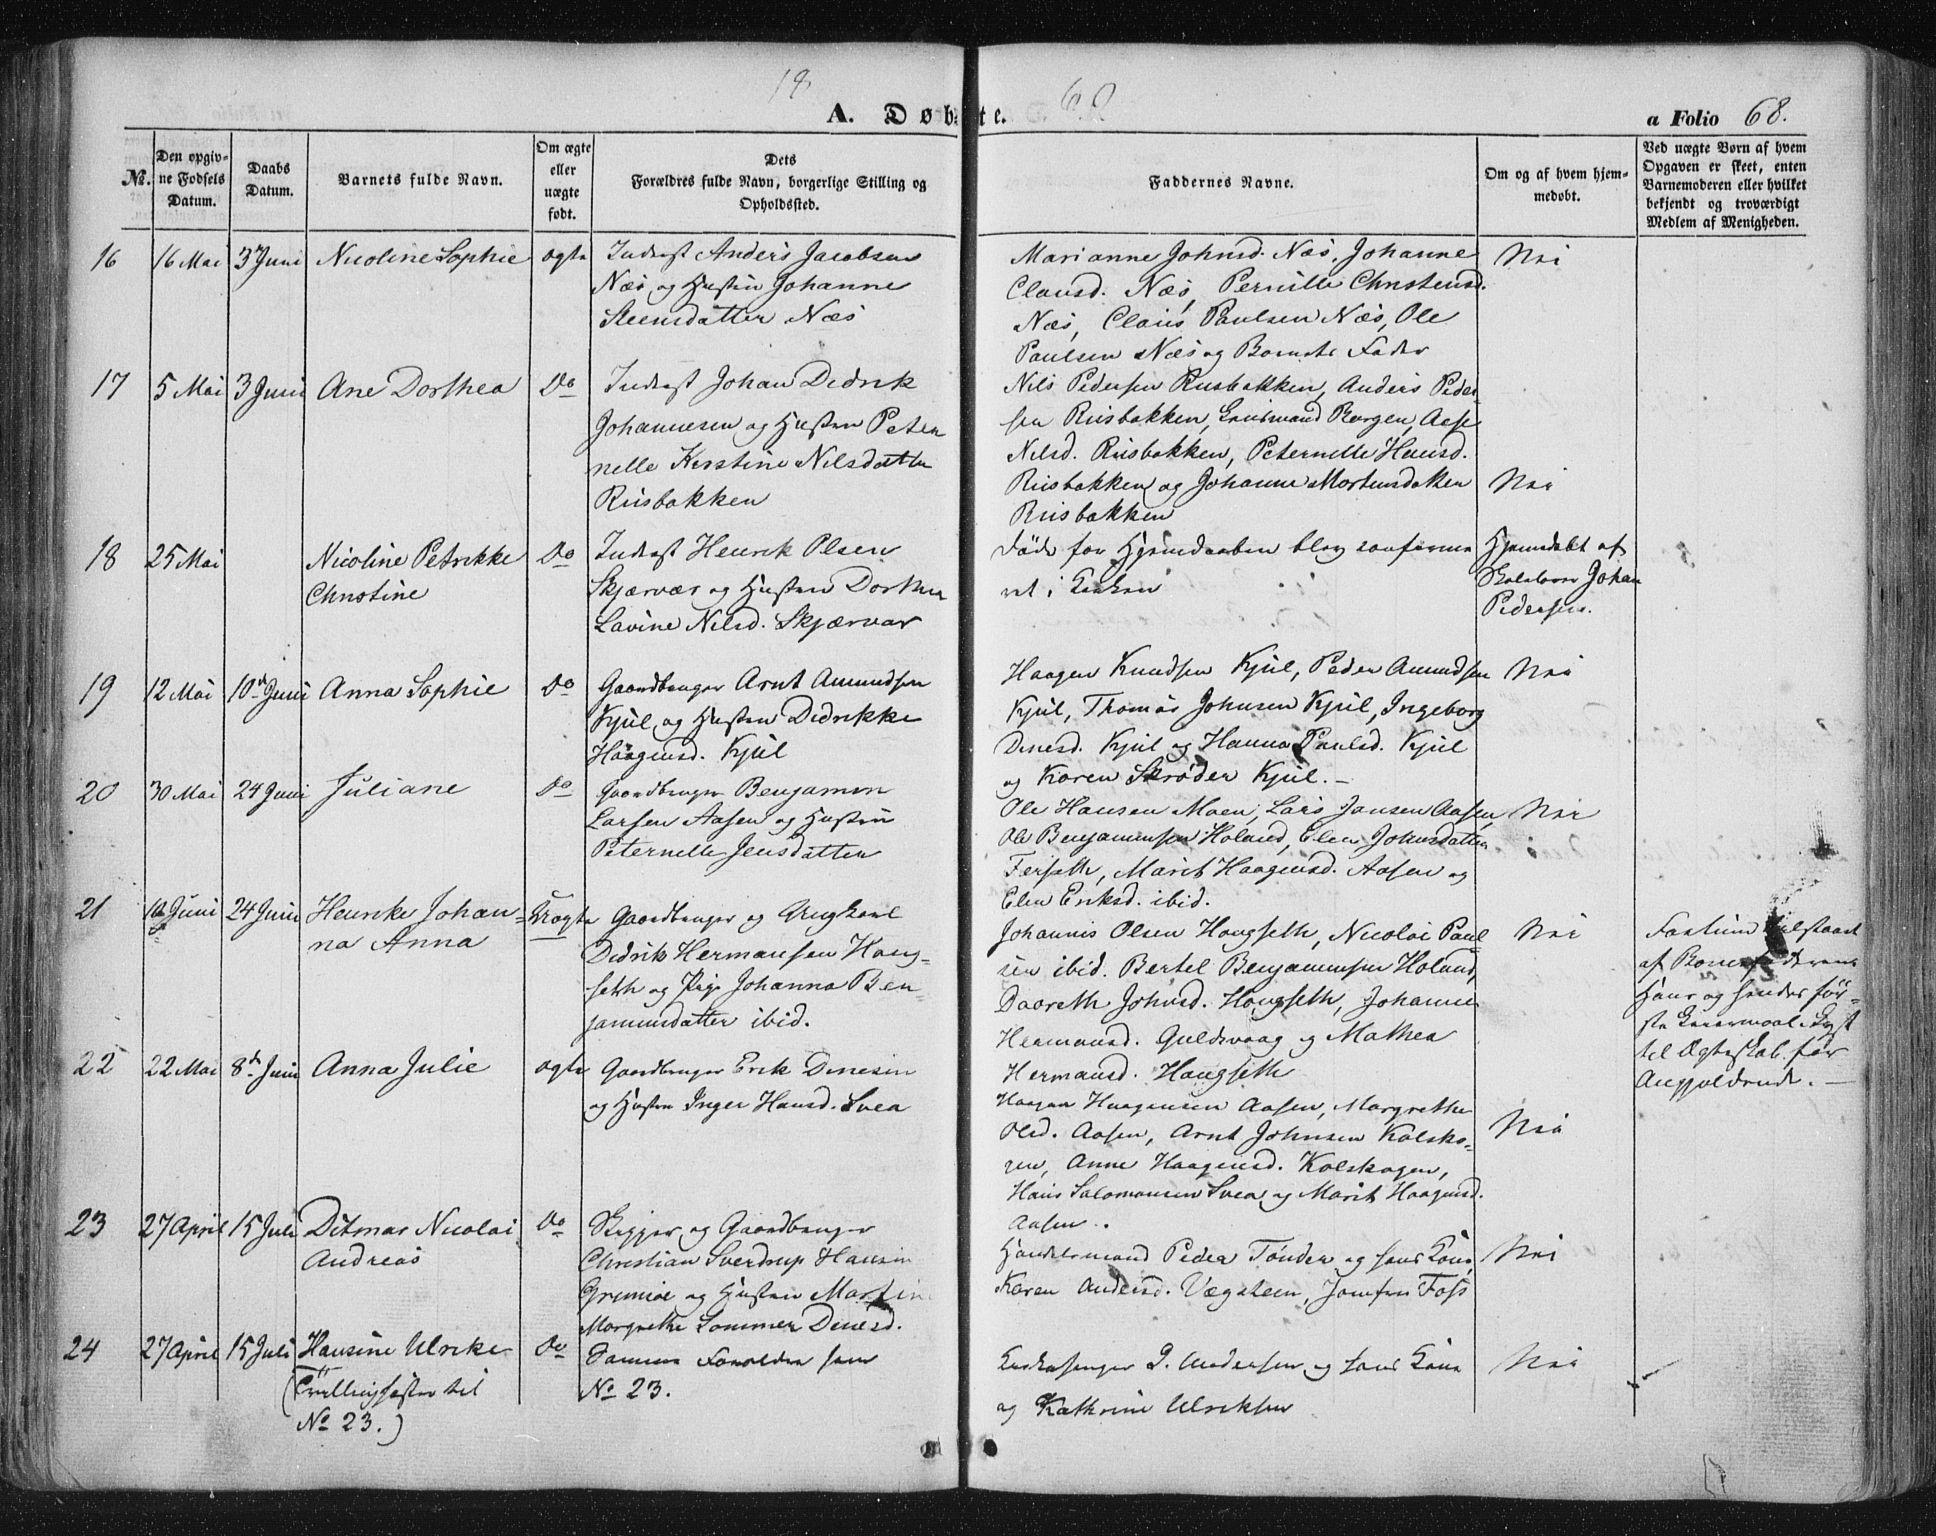 18 60
A. Døbte. a Folio 68.
No.
Den opgivne Fødsels Datum.
Daabs Datum.
Barnets fulde Navn.
Om ægte eller uægte født.
Dets Forældres fulde Navn, borgerlige Stilling og Opholdssted.
Faddernes Navne.
Om og af hvem hjemmedøbt.
Ved uægte Børn af hvem Opgaven er skeet, enten Barnemoderen eller hvilket bekjendt og troværdigt Medlem af Menigheden.
16 16 Mai 3 Juni Nicoline Sophie ægte
Inderst Anders Jacobsen
Næs og Hustru Johanne
Steensdatter Næs
Marianne Johnsd. Næs, Johanne
Clausd. Næs, Pernille Christensd.
Næs, Claus Paulsen Næs, Ole
Paulsen Næs og Barnets Fader
Nei
17 5 Mai 3 Juni Ane Dorthea Do
Inderst Johan Didrik
Johannesen og Hustru Peter
nelle Kirstine Nilsdatter
Riisbakken
Nils Pedersen Riisbakken, Anders Peder-
sen Riisbakken, Borgen, Aase
Nilsd. Riisbakken, Peternelle Hansd.
Riisbakken og Johanne Mortensdatter
Riisbakken
Nei
18 25 Mai Nicoline Petrikke
Christine
Do
Inderst Henrik Olsen
Skjærvær og Hustru Dorthea
Lavine Nilsd. Skjærvær
Døde før Hjemdaaben blev confirme
ret i Kirken
Hjemdøbt af
Skolelærer Johan
Pedersen.
19 12 Mai 10de Juni Anna Sophie Do
Gaardbruger Arnt Amundsen
Kjul og Hustru Didrikke
Haagensd. Kjul
Haagen Knudsen Kjul, Peder Amundsen
Kjul, Thomas Johnsen Kjul, Ingeborg
Dinesd. Kjul og Hanna Paulsd. Kjul
og Karen Skrøder Kjul.
Nei
20 30 Mai 24 Juni Juliane Do
Gaardbruger Benjamin
Larsen Aasen og Hustru
Peternelle Jensdatter
Ole Hansen Moen, Lars Jansen Aasen,
Ole Benjaminsen Holand, Elen Johnsdatter
Ferseth, Marit Haagensd. Aasen og
Elen Eriksd. ibid.
Nei
21 Juni 24 Juni Henrike Johan-
na Anna
Uægte
Gaardbruger og Ungkarl
Didrik Hermansen Haug-
seth og Pige Johanna Ben-
jaminsdatter ibid.
Johannes Olsen Hougseth, Nicolai Paul-
sen ibid. Bertel Benjaminsen Holand,
Daareth Johnsd. Hougseth, Johanne
Hermansd. Guldsvaag og Mathea
Hermansd. Hougseth
Nei
af Barnefaderen
Hans og hendes før-
ste Leiermaal. Lyst
til Ægteskab for
Angjeldende.
22 22 Mai 8de Juni Anna Julie ægte
Gaardbruger Erik Dinesen
og Hustru Inger Hansd. Svea
Haagen Haagensen Aasen, Margrethe
Olsd. Aasen, Arnt Johnsen Kalsko-
gen, Anne Haagensd. Kolskogen,
Hans Salomonsen Svea og Marit Haagensd.
Aasen.
Nei
23 27 April 15 Juli Ditmar Nicolai
Andreas
Do
Skipper og Gaardbruger
Christian Sverdrup Hansen
Grimsøe og Hustru Martin
Margrethe Sommer Dinesd.
Handelsmand Peder Tønder og hans Kone
Karen Andersd. Vægsteen, Jomfru Foss
Nei
24 27 April 15 Juli Hansine Ulrike
(Tvillingsøster til
No 23.)
Do
Samme Forældre som
No 23.
Kirkesanger P. Andersen og hans Kone
og Kathrine Ulriksen
Nei